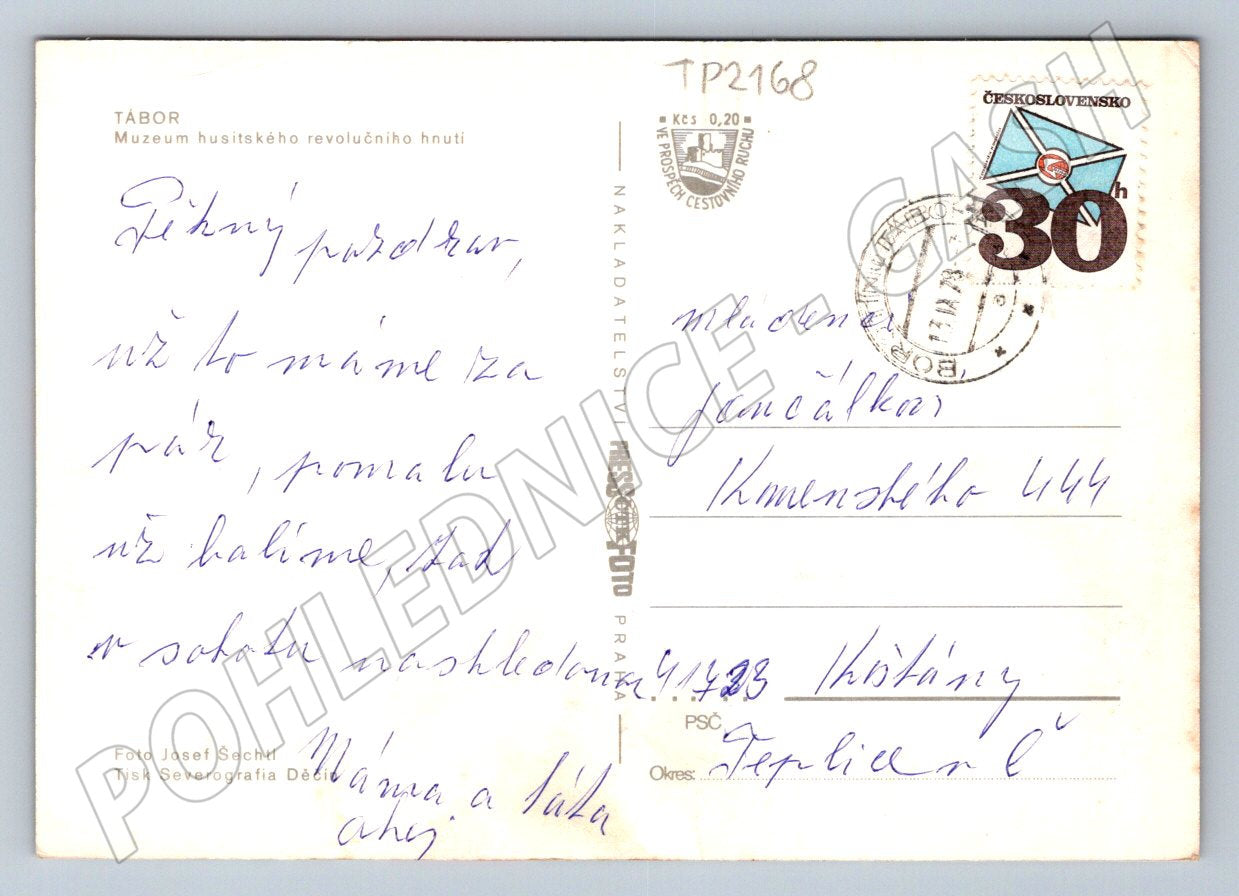 TP2168
TÁBOR
Muzeum husitského revolučního hnutí
Kčs 0,20
VE PROSPĚCH CESTOVNÍHO RUCHU
ČESKOSLOVENSKO
30h
Pěkný pozdrav,
už to máme za
pár, pomalu
už balíme, tak
v sobotu nashledanou
Máma a táta
ahoj
Foto Josef Šechtl
Tisk Severografia Děčín
NAKLADATELSTVÍ
PRESSFOTO
PRAHA
Mládenci
Jančálkovi
Komenského 444
417 23 Košťany
PSČ
Okres: Teplice v Č
POHLEDNICE - CASH